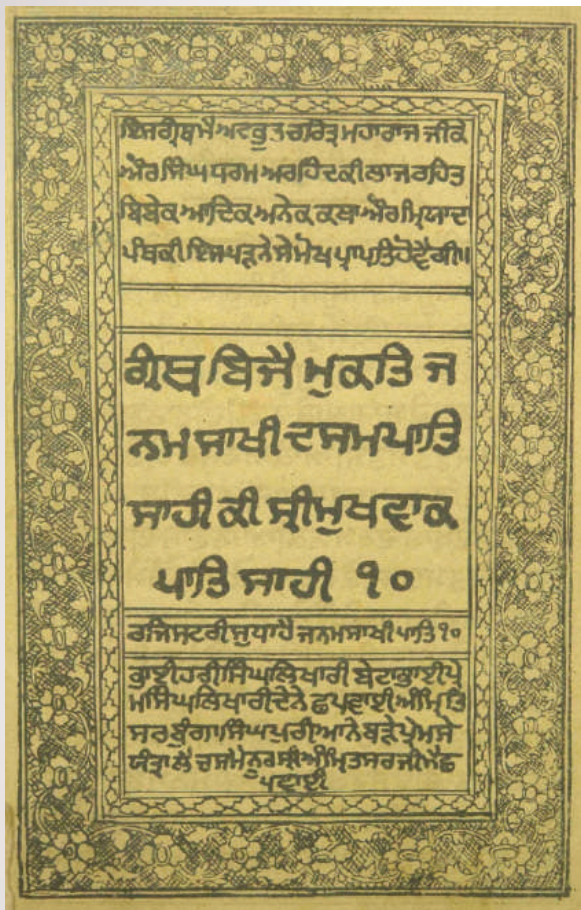 ਇਸ ਗ੍ਰੰਥ ਮੈ ਅਦਭੁਤ ਚਰਿਤ੍ਰ ਮਹਾਰਾਜ ਜੀ ਕੇ
ਔਰ ਸਿੰਘ ਧਰਮ ਅਰ ਹਿੰਦ ਕੀ ਲਾਜ ਰਹਿਤ
ਬਿਬੇਕ ਆਦਿਕ ਅਨੇਕ ਕਥਾ ਔਰ ਮ੍ਰਿਯਾਦਾ
ਪੰਥ ਕੀ ਇਸ ਪੜ੍ਹਨੇ ਸੇ ਮੋਖ ਪ੍ਰਾਪਤਿ ਹੋਵੈਗੀ॥
ਗ੍ਰੰਥ ਬਿਜੈ ਮੁਕਤਿ ਜ
ਨਮ ਸਾਖੀ ਦਸਮ ਪਾਤਿ
ਸਾਹੀ ਕੀ ਸ੍ਰੀ ਮੁਖਵਾਕ
ਪਾਤਿ ਸਾਹੀ ੧੦
ਰਜਿਸਟਰੀ ਸੁਧਾ ਹੈ ਜਨਮ ਸਾਖੀ ਪਾਤਿ ੧੦
ਭਾਈ ਹਰੀ ਸਿੰਘ ਲਿਖਾਰੀ ਬੇਟਾ ਭਾਈ ਪ੍ਰੇ
ਮ ਸਿੰਘ ਲਿਖਾਰੀ ਦੇ ਨੇ ਛਪਵਾਈ ਅੰਮ੍ਰਿਤ
ਸਰ ਬੁੰਗਾ ਸਿੰਘ ਪੁਰੀਆ ਨੇ ਬੜੇ ਪ੍ਰੇਮ ਸੇ
ਯੰਤ੍ਰਾਲੈ ਚਸਮੇ ਨੂਰ ਸ੍ਰੀ ਅੰਮ੍ਰਿਤਸਰ ਜੀ ਮੈ ਛ
ਪਵਾਈ